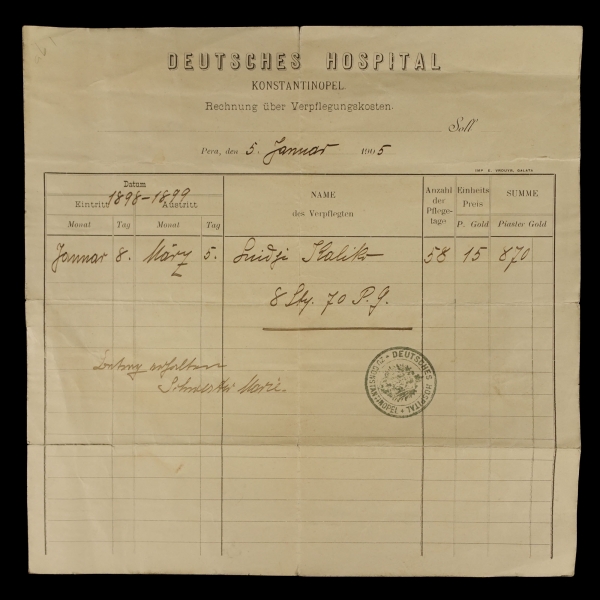 DEUTSCHES HOSPITAL
KONSTANTINOPEL.
Rechnung über Verpflegungskosten.
Soll
Pera, den 5. Januar 1905
Datum
1898-1899
Eintritt Austritt
Monat Tag Monat Tag
NAME
des Verpflegten
Anzahl
der
Pflege-
tage
Einheits
Preis
P. Gold
SUMME
Piaster Gold
Januar 8. März 5. Luidgi 58 15 870
8 70 P. G.
Betrag erhalten
Schwester Marie
DEUTSCHES HOSPITAL
ZU CONSTANTINOPEL